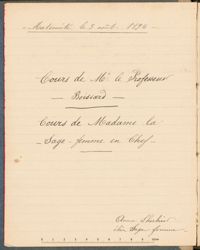 Maternité, le 5 août 1894
Cours de Mr le Professeur
Boissard
Cours de Madame la
Sage-femme en Chef
Anna
élève Sage femme